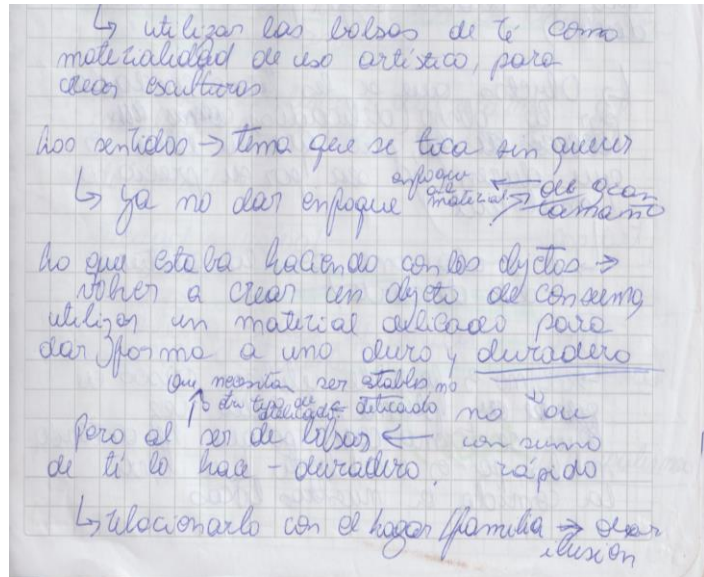 ↳ utilizar las bolsas de té como
materialidad de uso artístico, para
crear esculturas
Los sentidos → tema que se toca sin querer
↳ ya no dar enfoque enfoque al material ← de gran
tamaño
Lo que estaba haciendo con los objetos →
volver a crear un objeto de consumo,
utilizar un material delicado para
dar forma a uno duro y duradero
que necesitan ser estables no
delicado no
pero al ser de bolsas ← consumo
de té lo hace - duradero, rápido
↳ relacionarlo con el hogar/familia →
ilusión